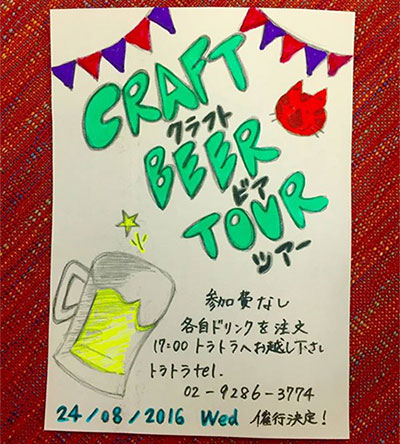 CRAFT
クラフト
BEER
ビア
TOUR
ツアー
参加費なし
各自ドリンクを注文
17:00 トラトラへお越し下さい
トラトラtel.
02-9286-3774
24/08/2016 Wed 催行決定!